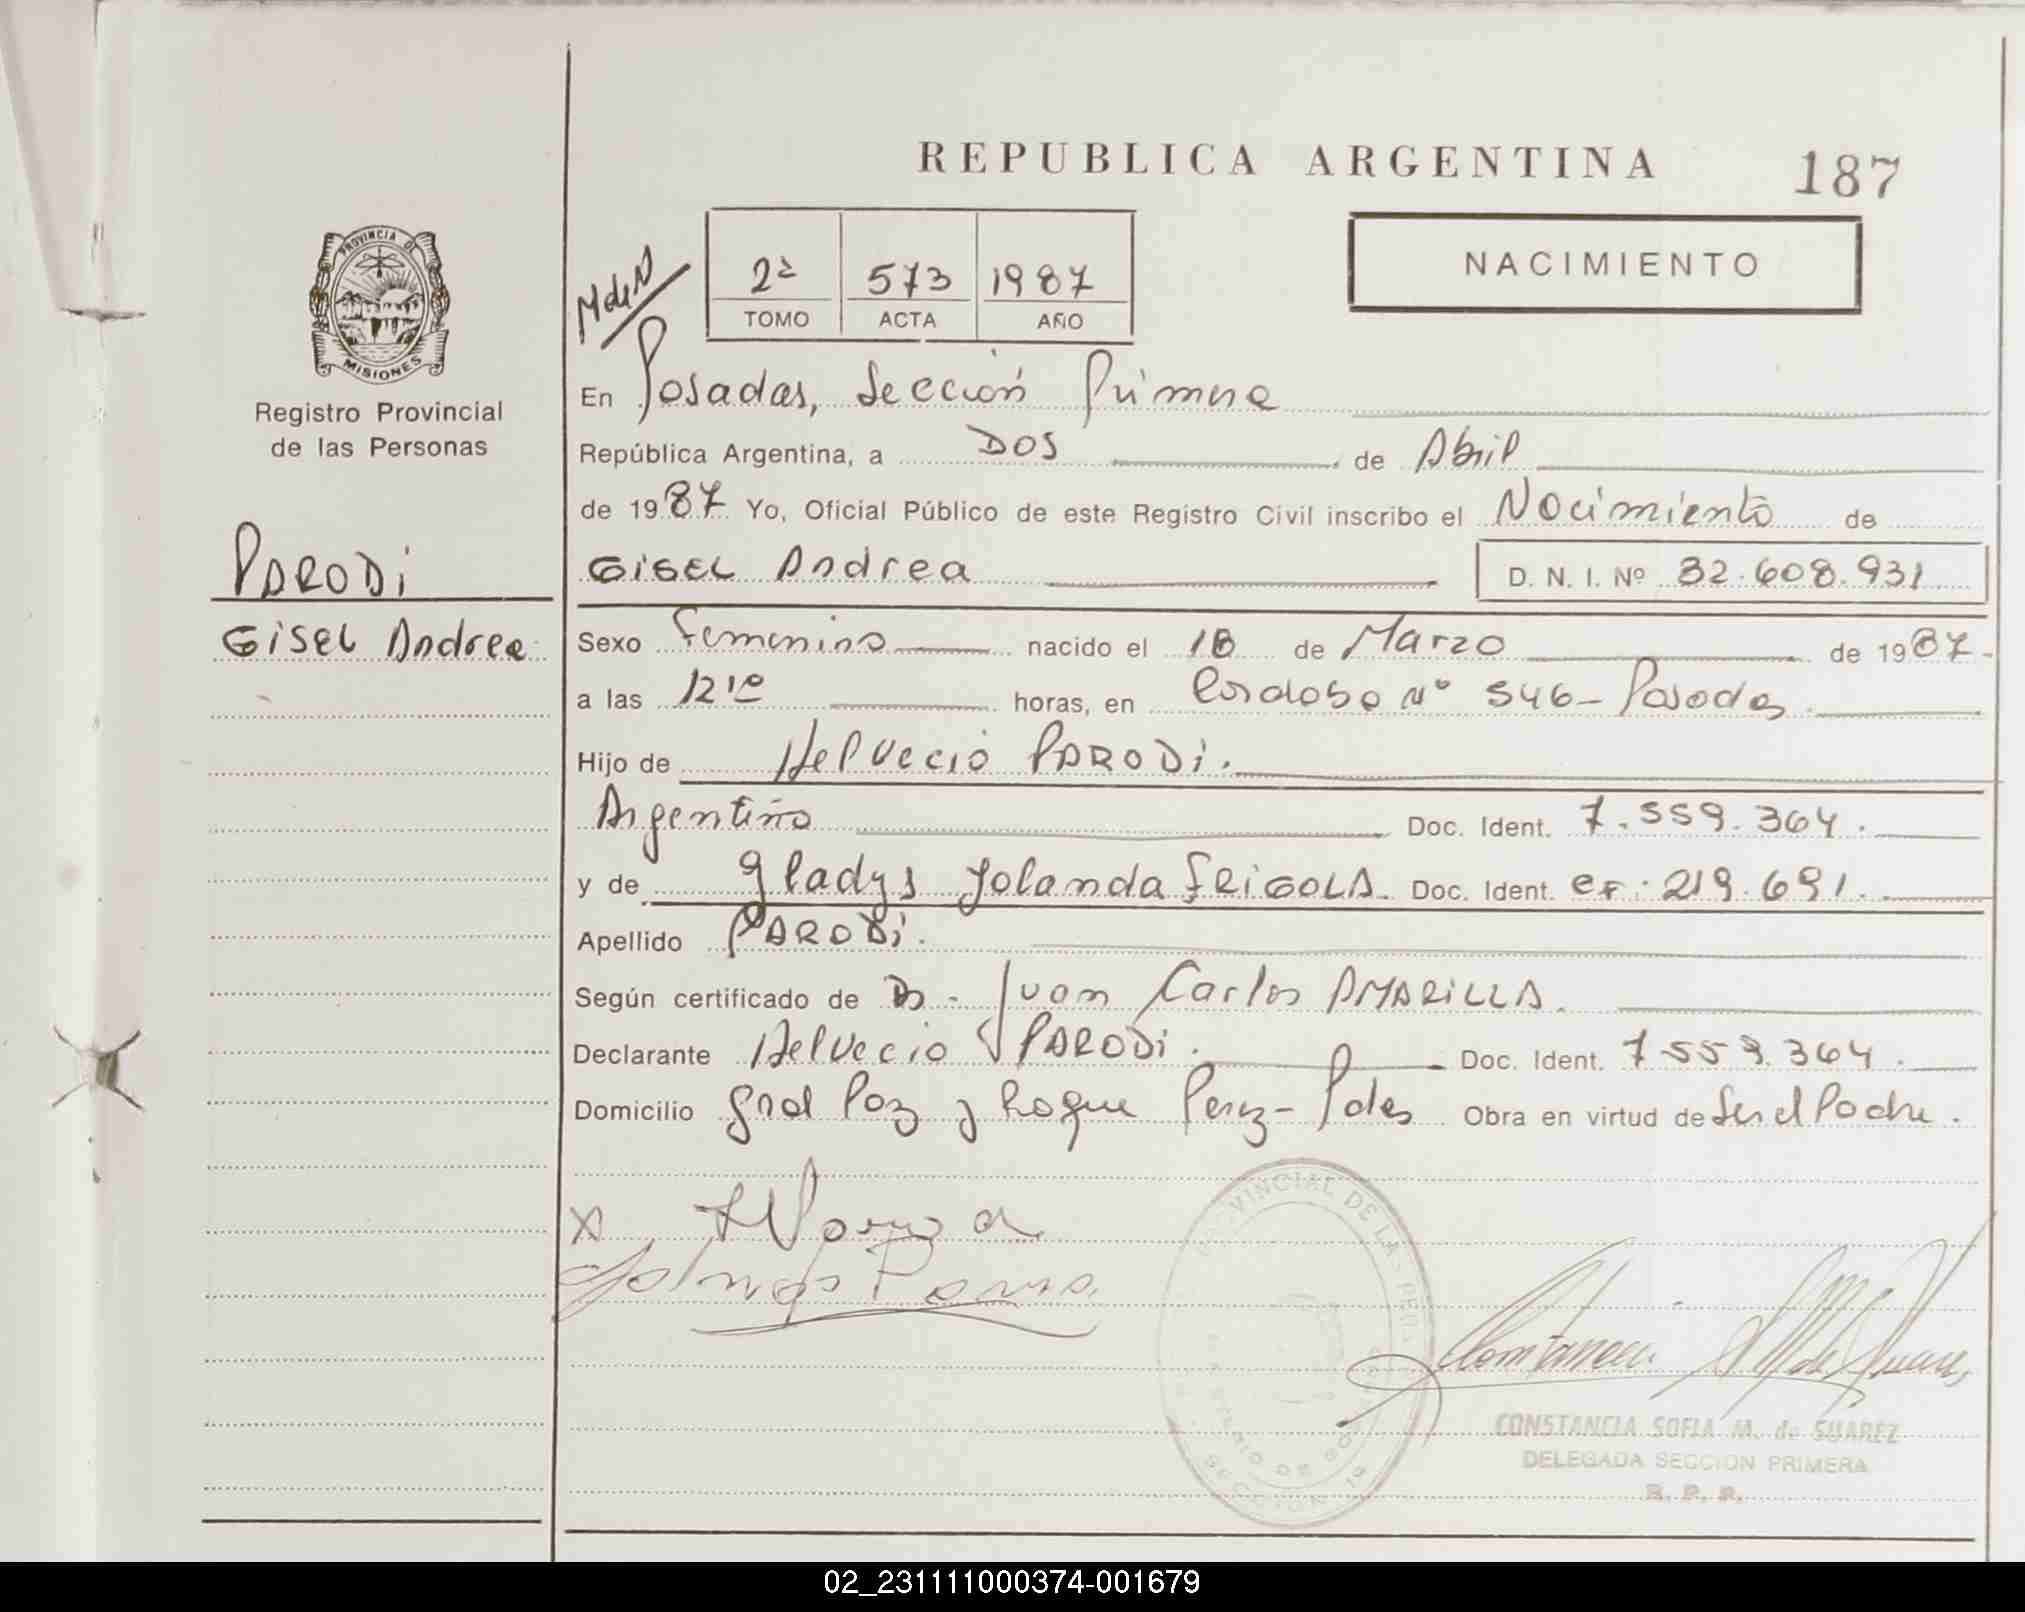 REPUBLICA ARGENTINA
187
NACIMIENTO
2ª 573 1987
TOMO ACTA AÑO
PROVINCIA DE
MISIONES
Registro Provincial
de las Personas
PARODi
GiSEL Andrea
En Posadas, Sección Primera
República Argentina, a DOS de Abril
de 1987 Yo, Oficial Público de este Registro Civil inscribo el Nacimiento de
GiSEL Andrea D. N. I. Nº 32.608.931
Sexo Femenino nacido el 18 de Marzo de 1987-
a las 12'10 horas, en Cordoba Nº 546- Posadas
Hijo de Helvecio PARODi.
Argentino Doc. Ident. 7.559.364.
y de Gladys Yolanda FRiGOLA. Doc. Ident. CF: 219.691.
Apellido PARODi.
Según certificado de Dr. Juan Carlos AMARiLLA.
Declarante Helvecio PARODi. Doc. Ident. 7559.364.
Domicilio Gral Paz y Roque Perez- Pdas Obra en virtud de Ser el Padre.
X
PROVINCIAL DE LAS PERS
SECCION 1ª
CONSTANCIA SOFIA M. de SUAREZ
DELEGADA SECCION PRIMERA
R. P. P.
02_231111000374-001679